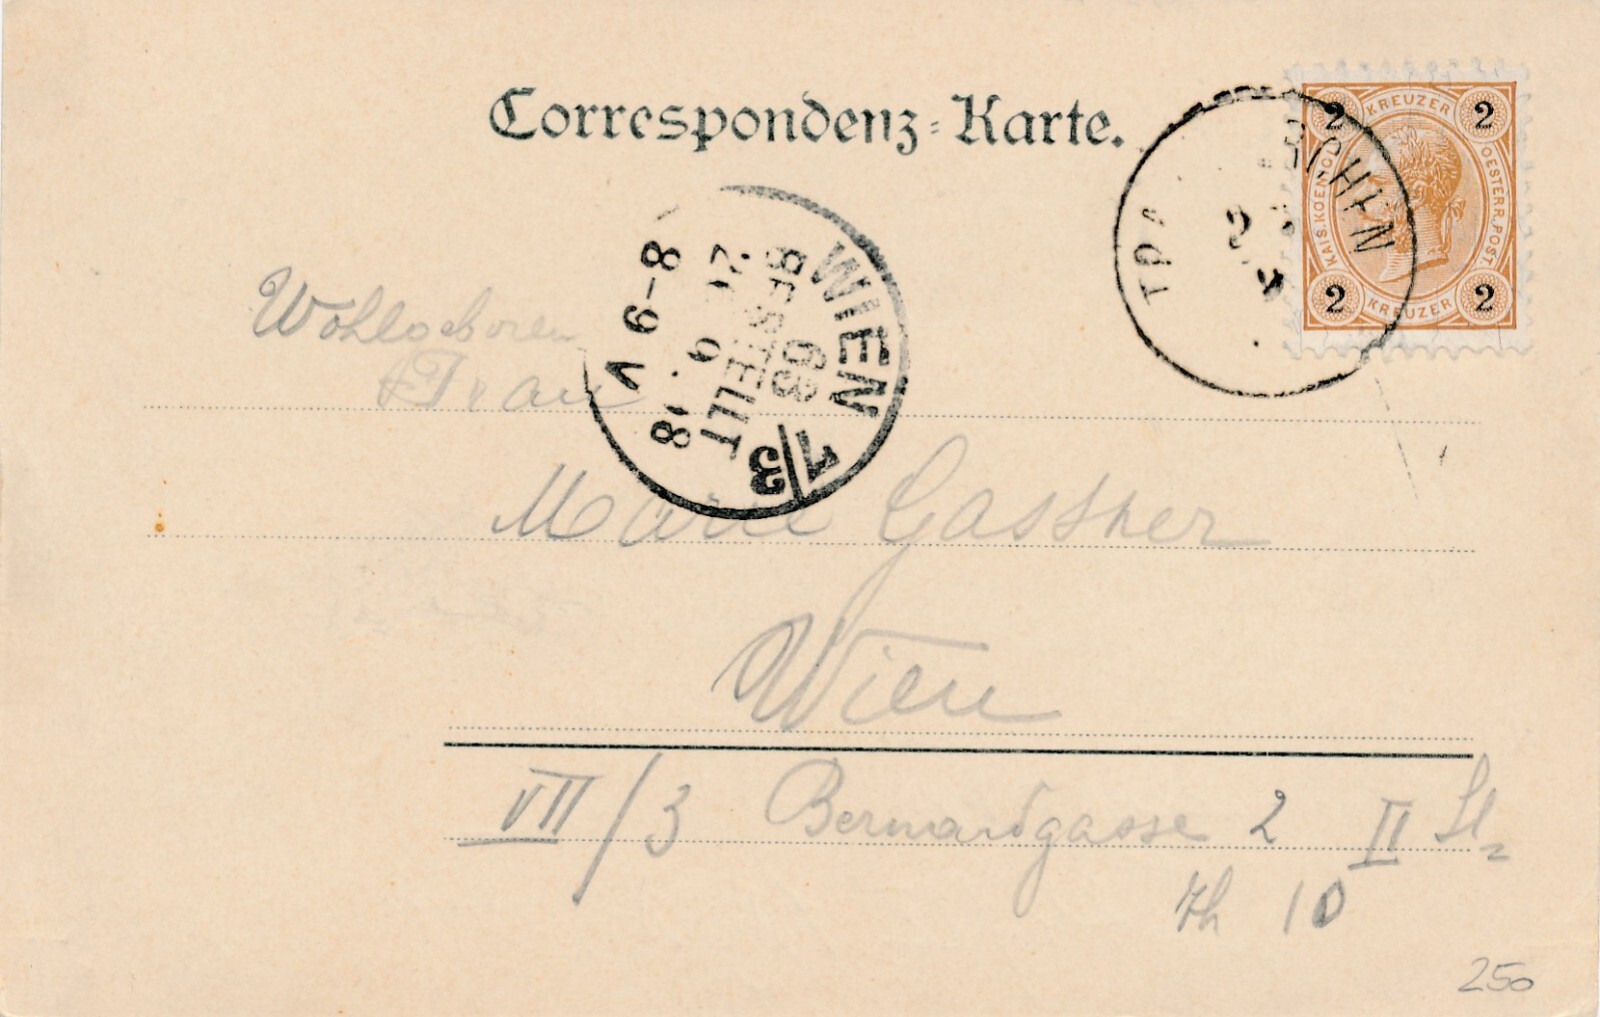 Correspondenz-Karte.
2 KREUZER 2
KAIS. KOEN.
OESTERR. POST
2 KREUZER 2
WIEN
1/3
68
BESTELLT
8-9 V
Wohlgeboren
Frau
Marie Gassner
Wien
VII/3 Bernardgasse 2 II St
Th 10
250